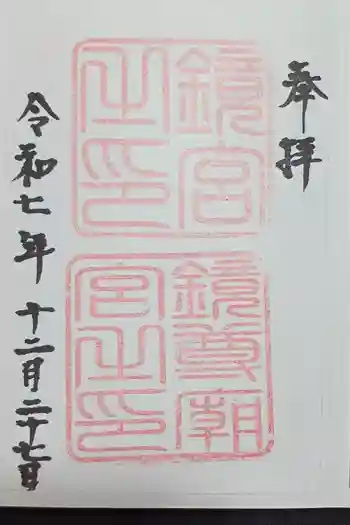 奉拝
鏡宮之印
鏡尊廟宮之印
令和七年 十二月二十七日